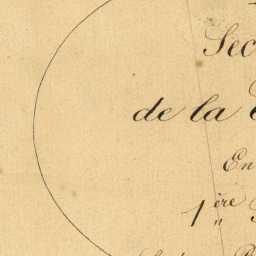 Sec
de la
En
1ère